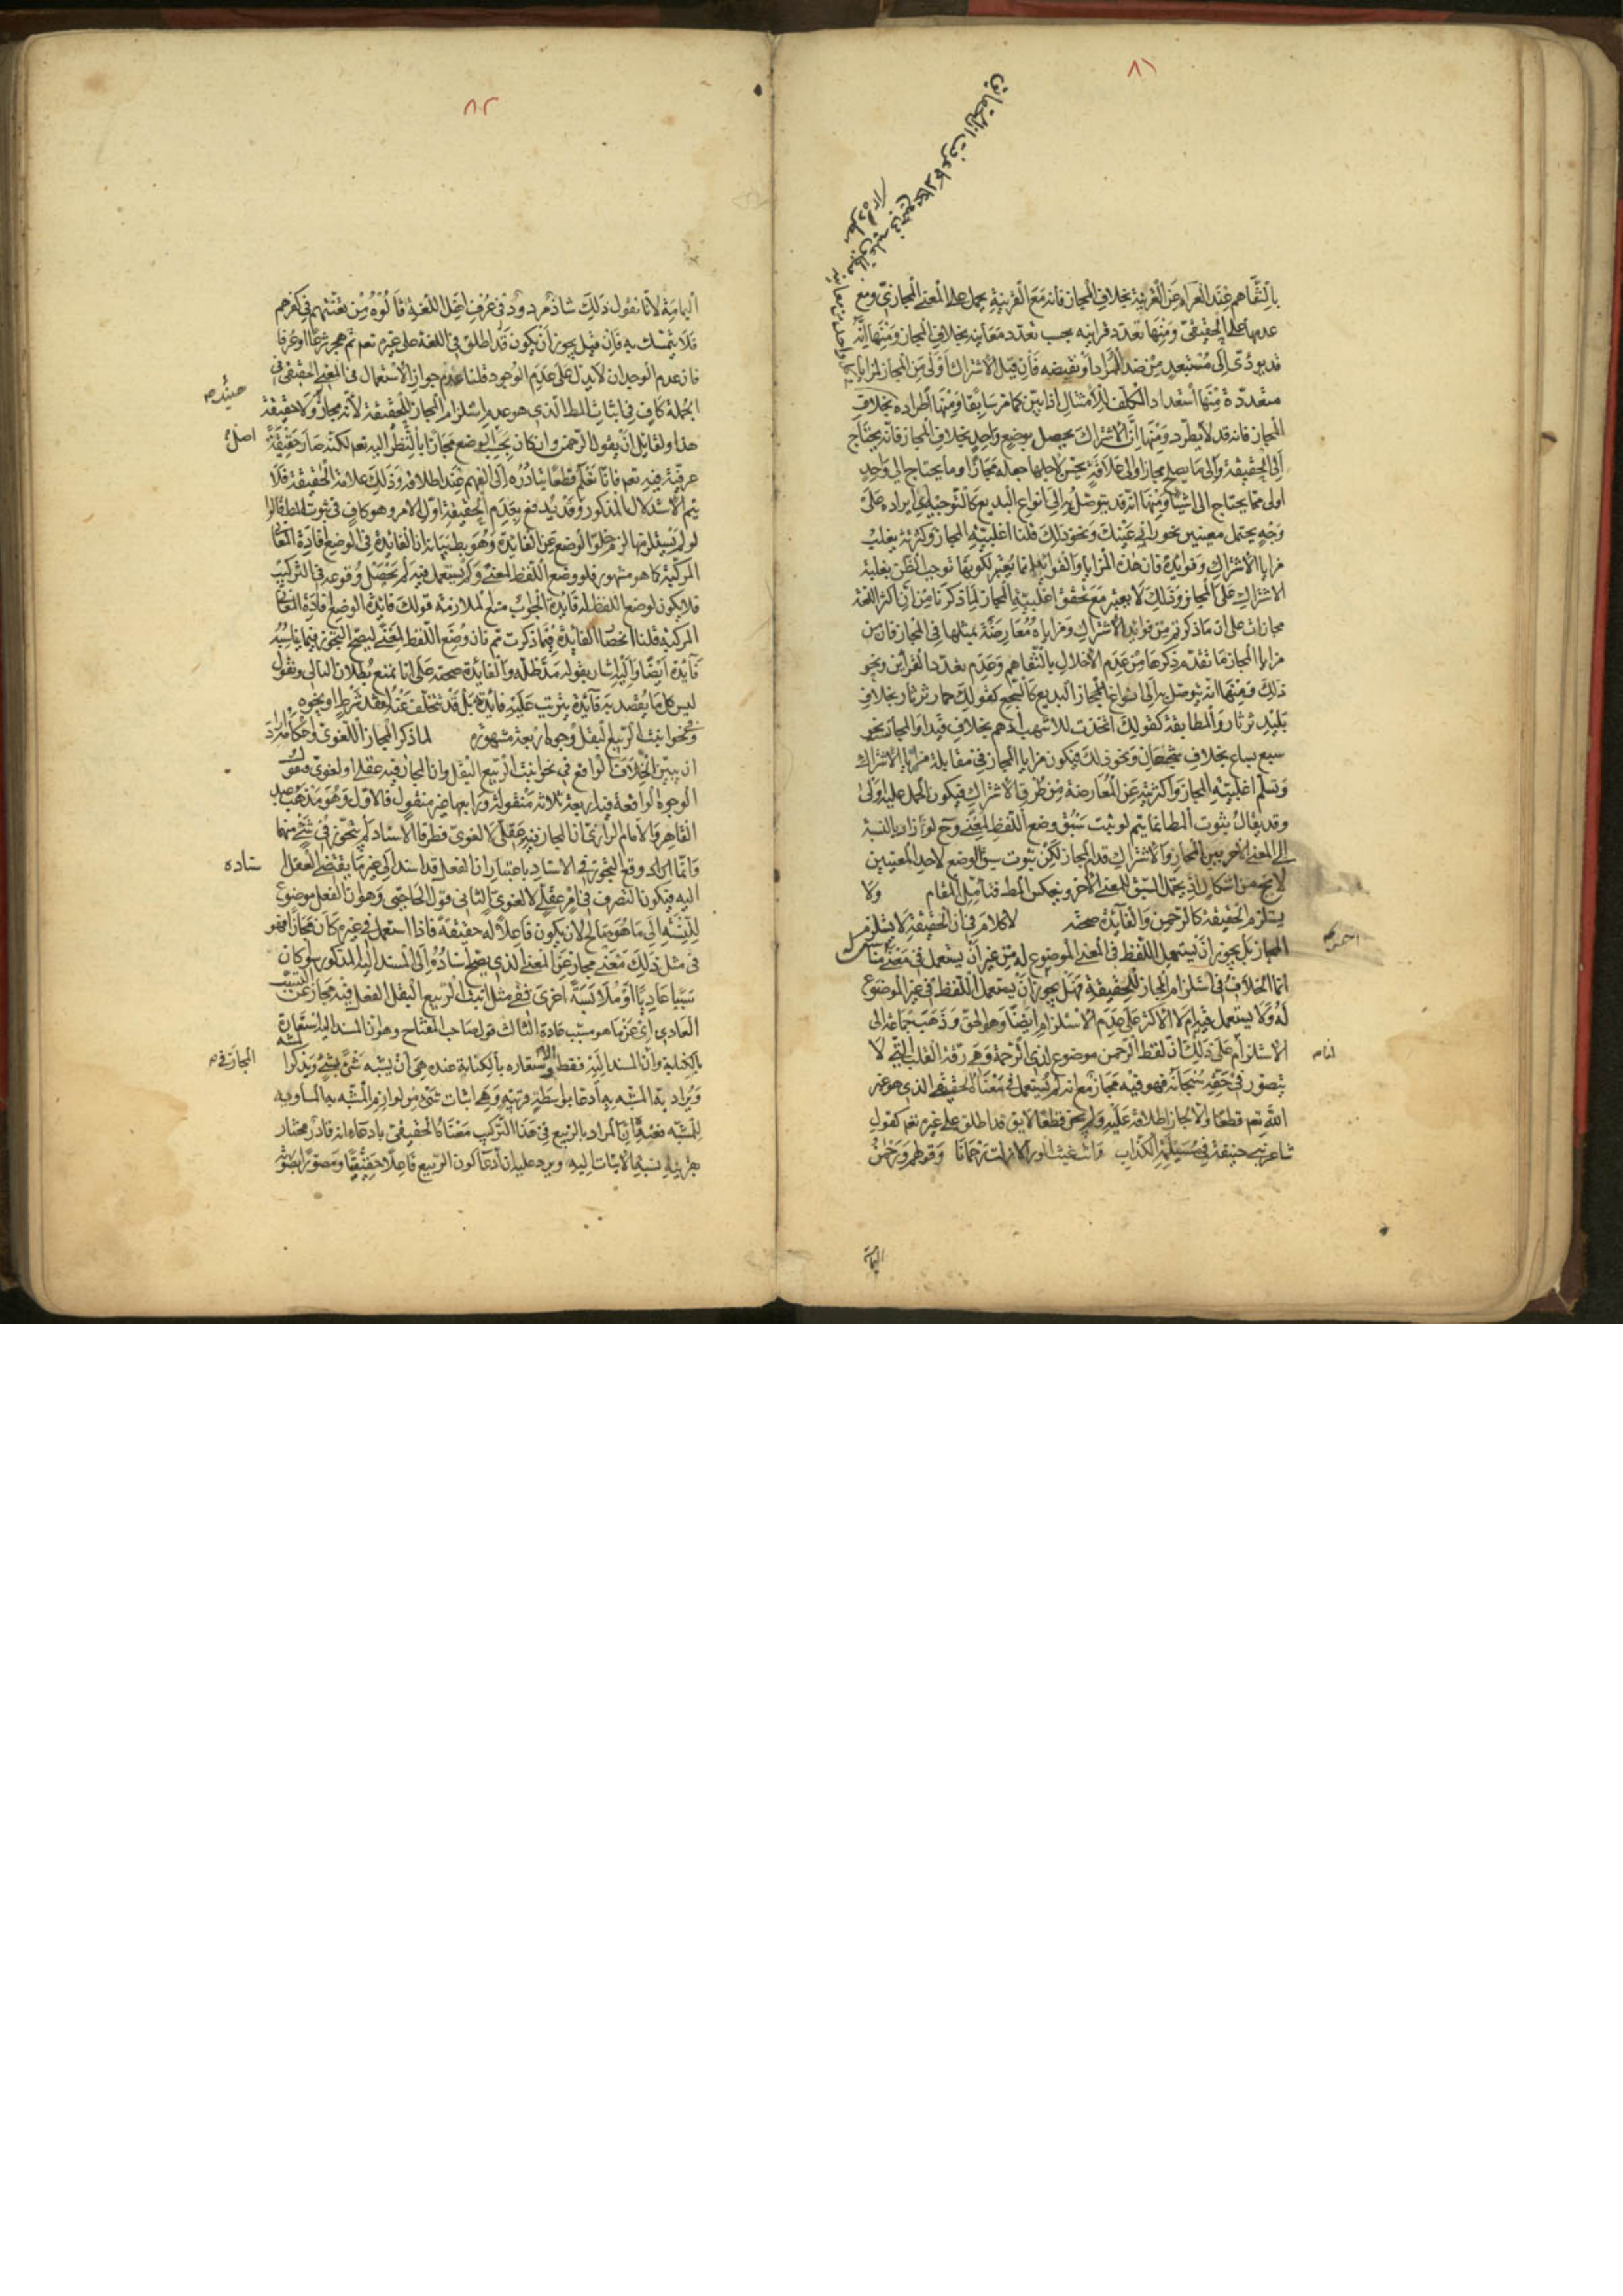 ٨١
بالتفاهم عند العراء عن القرينة بخلاف المجاز فانه مع القرينة يحمل على المعنى المجازي ومع
عدمها على الحقيقي ومنها تعدد قراينه بحسب تعدد معانيه بخلاف المجاز ومنها انه
قد يودى الى مستبعد من ضد المراد او نقيضه فان قيل الاشتراك اولى من المجاز لمزايا
متعددة منها استعداد المكلف للامتثال اذا بين كما مر سابقا ومنها اطراده بخلاف
المجاز فانه قد لا يطرد ومنها ان الاشتراك يحصل بوضع واحد بخلاف المجاز فانه يحتاج
الى الحقيقة والى ما يصلح مجازا والى علاقة يحسن لاجلها جعله مجازا وما يحتاج الى واحد
اولى مما يحتاج الى اشياء ومنها انه قد يتوصل به الى انواع البديع كالتوجيه اي ايراده على
وجه يحتمل معنيين نحو رانى عينك ونحو ذلك قلنا اغلبية المجاز وكثرته يغلب
مزايا الاشتراك وفوائده فان هذه المزايا والفوائد انما يعتبر لكونها توجب الظن بغلبة
الاشتراك على المجاز وذلك لا يعتبر مع تحقق اغلبية المجاز لما ذكرنا من ان اكثر اللغة
مجازات على ان ما ذكرتم من فوائد الاشتراك ومزاياه معارضة بمثلها في المجاز فان من
مزايا المجاز ما تقدم ذكرها من عدم الاخلال بالتفاهم وعدم تعدد القراين ونحو
ذلك ومنها انه يتوصل به الى انواع المجاز البديع كالسجع كقولك حمار ثرثار بخلاف
بليد ثرثار والمطابقة كقولك اتخذت للاشهب ادهم بخلاف قيدا والمجاز نحو
سبع سباع بخلاف شجعان ونحو ذلك فيكون مزايا المجاز في مقابلة مزايا الاشتراك
وتسلم اغلبية المجاز واكثريته عن المعارضة من طرف الاشتراك فيكون الحمل عليه اولى
وقد يقال ثبوت المط انما يتم لو ثبت سبق وضع اللفظ لمعنى وح لو دار بالنسبة
الى المعنى الاخر بين المجاز والاشتراك قدم المجاز لكن ثبوت سبق الوضع لاحد المعنيين
لا يخ عن اشكال اذ يحتمل السبق للمعنى الاخر وينعكس المط فتامل المقام ولا
يستلزم الحقيقة كالرحمن والفائدة صحته لا كلام في ان الحقيقة لا يستلزم
المجاز بل يجوز ان يستعمل اللفظ في المعنى الموضوع له من غير ان يستعمل في معنى مناسب له
انما الخلاف في استلزام المجاز للحقيقة فهل يجوز ان يستعمل اللفظ في غير الموضوع
له ولا يستعمل فيه ام لا الاكثر على عدم الاستلزام ايضا وهو الحق وذهب جماعة الى
الاستلزام على ذلك ان لفظ الرحمن موضوع لذي الرحمة وهي رقة القلب التي لا
يتصور في حقه سبحانه فهو فيه مجاز مع انه لم يستعمل في معناه الحقيقي الذي هو غير
الله تعم قطعا ولا يجاز اطلاقه عليه ولم يحز قطعا لا يق قد اطلق على غيره تعم كقول
شاعر بنى حنيفة في مسيلمة الكذاب وانت غيث الورى لا زلت رحمانا وقولهم رحمن
لنا م
اليمامة
٨٢
اليمامة لانا نقول ذلك شاذ مردود في عرف اهل اللغة قالوه من تعنتهم في كفرهم
فلا يتمسك به فان قيل يجوز ان يكون قد اطلق في اللغة على غيره تعم ثم هجر شرعا او عرفا
فان عدم الوجدان لا يدل على عدم الوجود قلنا عدم جواز الاستعمال في المعنى الحقيقي في
الجملة كاف في اثبات المط الذي هو عدم استلزام المجاز للحقيقة لانه مجاز ولا حقيقة
هذا ولقائل ان يقول الرحمن وان كان بحسب الوضع مجازا بالنظر اليه تعم لكنه صار حقيقة
عرفية فيه تعم فانا نعلم قطعا تبادره الى الفهم عند اطلاقه وذلك علامة الحقيقة فلا
يتم الاستدلال المذكور وقد يدفع بعدم الحقيقة اول الامر وهو كاف في ثبوت المط قالوا
لو لم يستلزمها لزم خلو الوضع عن الفائدة وهو بط بيانه ان الفائدة في الوضع افادة المعاني
المركبة كما هو مشهور فلو وضع اللفظ لمعنى ولم يستعمل فيه لم يحصل وقوعه في التركيب
فلا يكون لوضع اللفظ له فائدة الجواب منع الملازمة قولك فائدة الوضع افادة المعاني
المركبة قلنا انحصار الفائدة فيما ذكرت تم فان وضع اللفظ لمعنى ليصح التجوز فيما يناسبه
فائدة ايضا واليه اشار بقوله مد ظله والفائدة صحته على انا نمنع بطلان التالي ونقول
ليس كل ما يقصد به فائدة يترتب عليه فائدة بل قد يتخلف عنه لفقد شرط او نحوه
ونحو انبت الربيع البقل وجوه اربعة مشهورة لما ذكر المجاز اللغوي واحكامه اراد
ان يبين الخلاف الواقع في نحو انبت الربيع البقل وان المجاز فيه عقلي او لغوي فنقول
الوجوه الواقعة فيه اربعة ثلاثة منقولة ورابعها غير منقول فالاول وهو مذهب عبد
القاهر والامام الرازي ان المجاز فيه عقلي لا لغوي فطرفا الاسناد لم يتجوز في شئ منهما
وانما وقع التجوز في الاسناد باعتبار ان الفعل قد اسند الى غير ما يقتضى العقل
اليه فيكون التصرف في امر عقلي لا لغوي الثاني قول الحاجبي وهو ان الفعل موضوع
للنسبة الى ما هو صالح لان يكون فاعلا له حقيقة فاذا استعمل في غيره كان مجازا فهو
في مثل ذلك معنى مجاز عن المعنى الذي يصح اسناده الى المسند اليه المذكور سواء كان
سببا عاديا او ملابسة اخرى ففي مثل انبت الربيع البقل الفعل فيه مجاز عن التسبب
العادي اي عن ما هو مسبب عادة الثالث قول صاحب المفتاح وهو ان المسند اليه استعارة
بالكناية وان المسند اليه فقط والاستعارة بالكناية عنده هي ان يشبه شئ بشئ ويذكر المشبه
ويراد به المشبه به ادعا بواسطة قرينة وهي اثبات شئ من لوازم المشبه به المساوية
للمشبه فعنده ان المراد بالربيع في هذا التركيب معناه الحقيقي بادعاء انه قادر مختار
بقرينة نسبة الانبات اليه ويرد عليه ان ادعا كون الربيع فاعلا حقيقيا ومتصورا بصورته
حينئذ م
اصل
سناده
المجاز في م